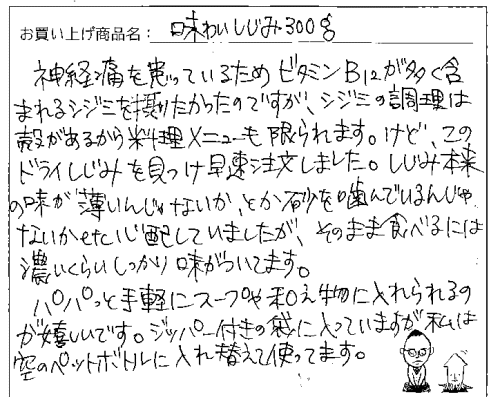 お買い上げ商品名： 味わいしじみ300g
神経痛を患っているためビタミンB12が多く含
まれるシジミを摂りたかったのですが、シジミの調理は
殻があるから料理メニューも限られます。けど、この
ドライしじみを見つけ早速注文しました。しじみ本来
の味が薄いんじゃないか、とか砂を噛んでいるんじゃ
ないかetc心配していましたが、そのまま食べるには
濃いくらいしっかり味がついてます。
パパッと手軽にスープや和え物に入れられるの
が嬉しいです。ジッパー付きの袋に入っていますが私は
空のペットボトルに入れ替えて使ってます。